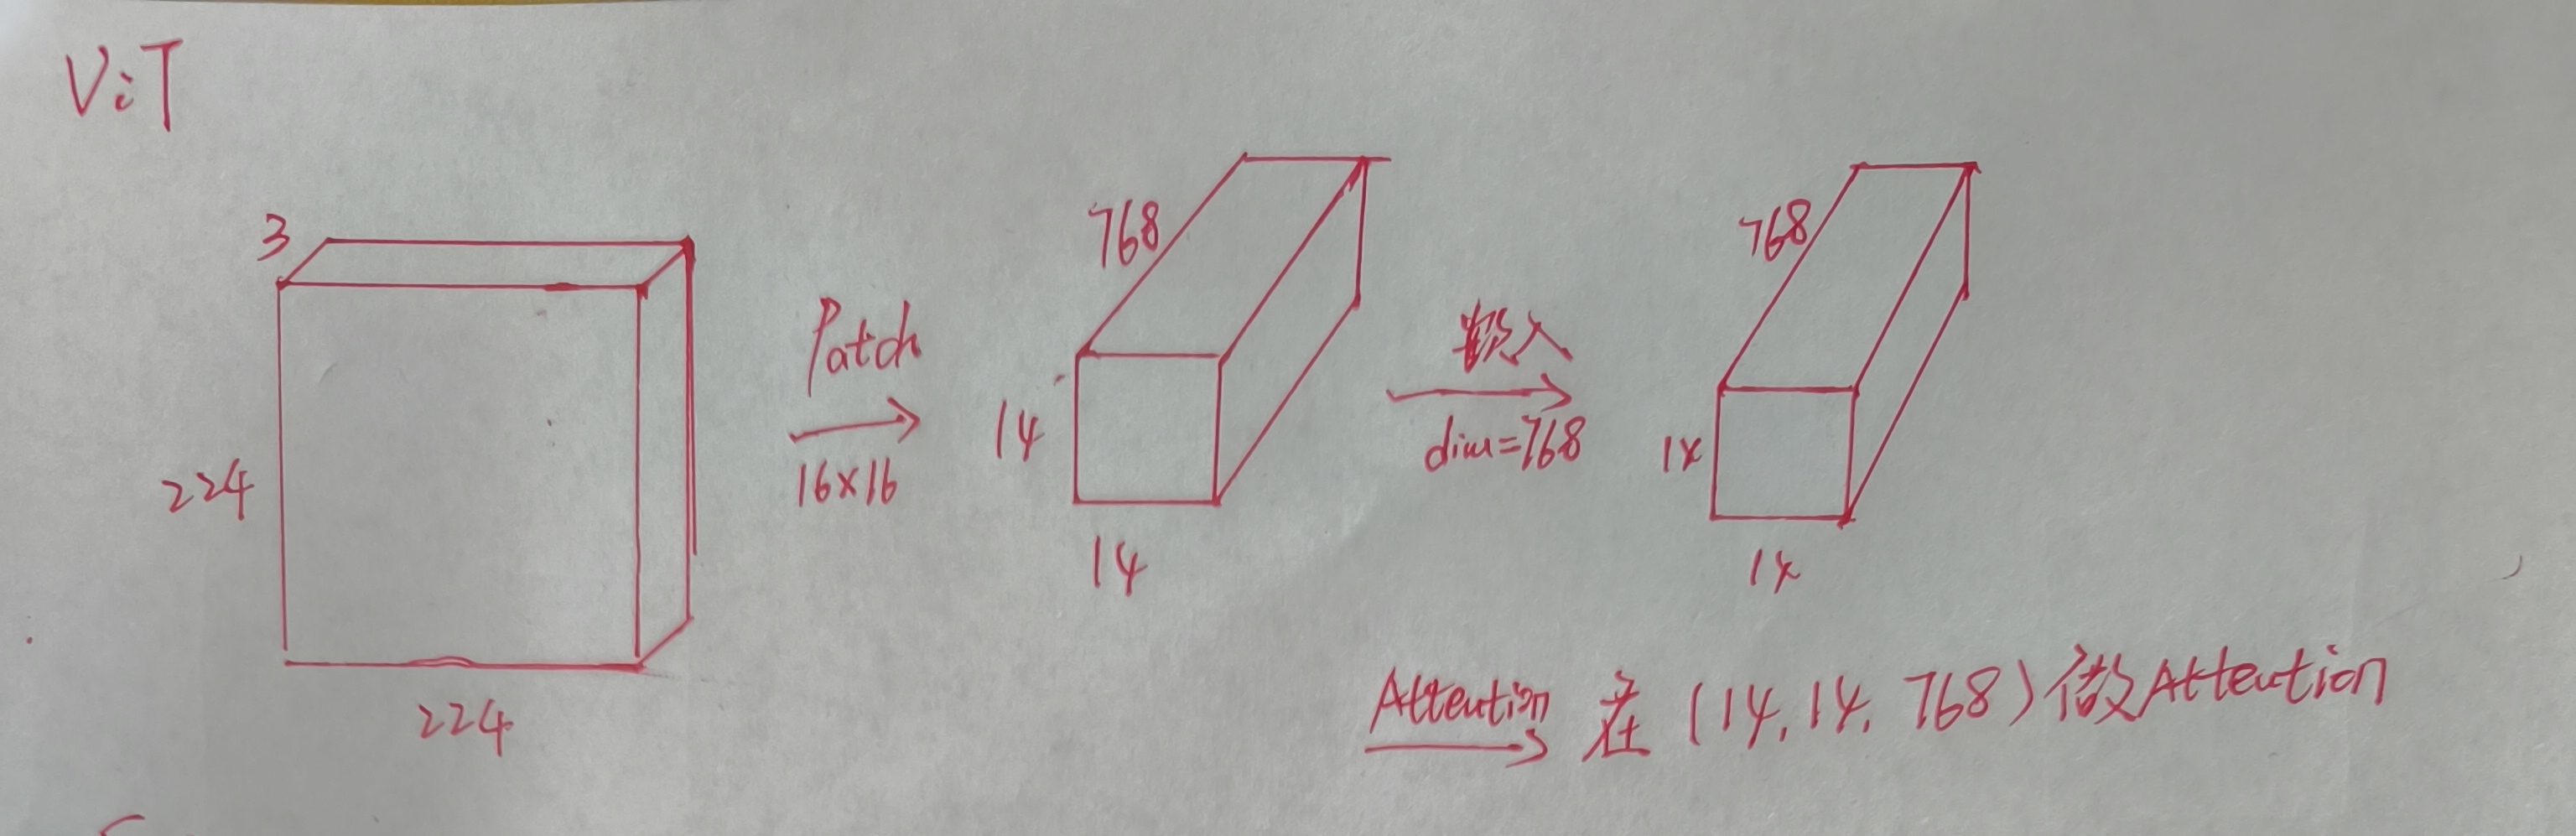 ViT
3
224
224
Patch
16×16
768
14
14
嵌入
dim=768
768
14
14
Attention
在 (14, 14, 768) 做Attention